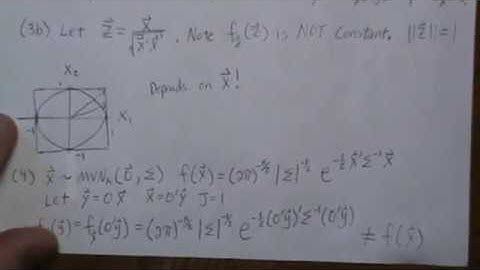 (3b) Let Z⃗ = X⃗ / √(X⃗'X⃗) . Note f_Z(Z⃗) is NOT Constant. ||Z⃗|| = 1
X₂
Depends on X⃗!
X₁
-1
1
-1
(4) X⃗ ~ MVNₙ(0⃗, Σ) f(X⃗) = (2π)^(-n/2) |Σ|^(-1/2) e^(-½ X⃗'Σ⁻¹X⃗)
Let Y⃗ = OX⃗ X⃗ = O'Y⃗ J = 1
f_y(Y⃗) = f_x(O'Y⃗) = (2π)^(-n/2) |Σ|^(-1/2) e^(-½(O'Y⃗)'Σ⁻¹(O'Y⃗)) ≠ f(X⃗)